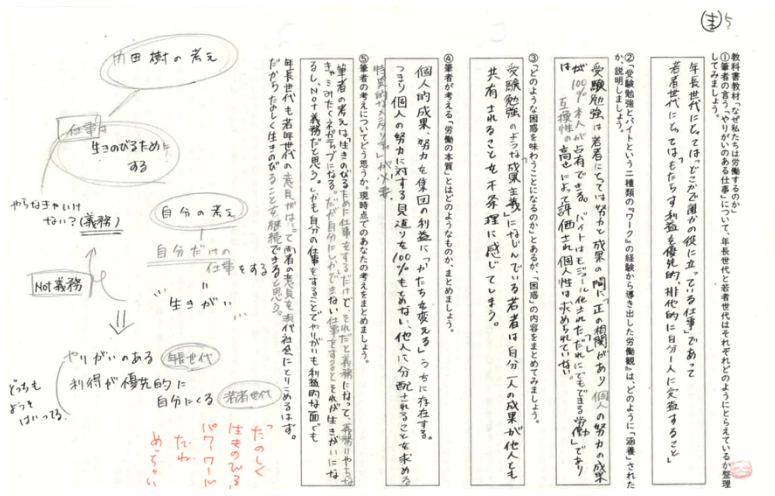 教科書教材「なぜ私たちは労働するのか」
①筆者の言う「やりがいのある仕事」について、年長世代と若者世代はそれぞれどのようにとらえているか整理
してみましょう。
年長世代にとっては「どこかで誰かの役に立っている仕事」であって
若者世代にとっては「もたらす利益を優先的、排他的に自分1人に交益すること」
②「受験勉強とバイトという二種類の『ワーク』の経験から導き出した労働観」は、どのように「涵養」された
か、説明しましょう。
受験勉強は若者にとっては努力と成果の間に「正の相関」があり個人の努力の成果
が100%本人が占有できる。バイトはモジュール化されただれにでもできる労働であり
は、互換性の高さによって評価され個人性は求められていない。
③「どのような困惑を味わうことになるのか」とあるが、「困惑」の内容をまとめてみましょう。
受験勉強のような「成果主義」になじんでいる若者は自分一人の成果が他人とも
共有されることを不条理に感じてしまう。
④筆者が考える「労働の本質」とはどのようなものか、まとめましょう。
個人的成果、努力を集団の利益に「かたちを変える」うちに存在する。
つまり個人の努力に対する見返りを100%もとめない、他人に分配されることを求める
⑤筆者の考えについてどう思うか。現時点でのあなたの考えをまとめましょう。
筆者の考えは、生きのびるために仕事をするだけで、それだと義務になって
るし、Not義務だと思う。しかも自分の仕事をすることでやりがいも利益的な面でも
だからたのしく生きのびることを継続できると思う。
内田樹の考え
仕事は
生きのびるために
する
やらなきゃいけ
ない?(義務)
自分の考え
自分だけの
仕事をする
生きがい
Not義務
やりがいのある 年長世代
利得が優先的に
自分にくる 若者世代
どっちも
ようそ
はいってる
"たのしく
生きのびる"
パワーワード
だね
めっちゃいい